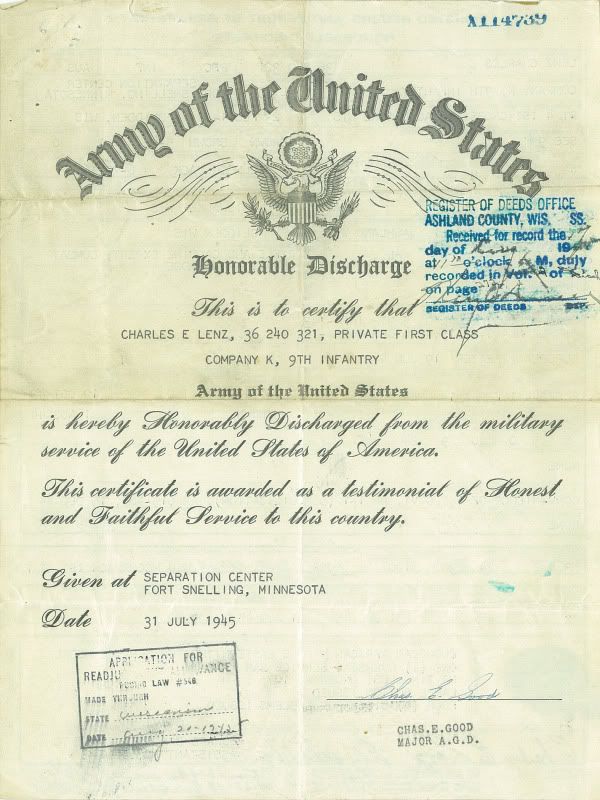 A114739
Army of the United States
REGISTER OF DEEDS OFFICE
ASHLAND COUNTY, WIS. SS.
Received for record the
day of 19
at o'clock M, duly
recorded in Vol. of
on page
REGISTER OF DEEDS
Honorable Discharge
This is to certify that
CHARLES E LENZ, 36 240 321, PRIVATE FIRST CLASS
COMPANY K, 9TH INFANTRY
Army of the United States
is hereby Honorably Discharged from the military
service of the United States of America.
This certificate is awarded as a testimonial of Honest
and Faithful Service to this country.
Given at SEPARATION CENTER
FORT SNELLING, MINNESOTA
Date 31 JULY 1945
APPLICATION FOR
MADE THROUGH
STATE Wisconsin
DATE
Chas. E. Good
CHAS.E.GOOD
MAJOR A.G.D.